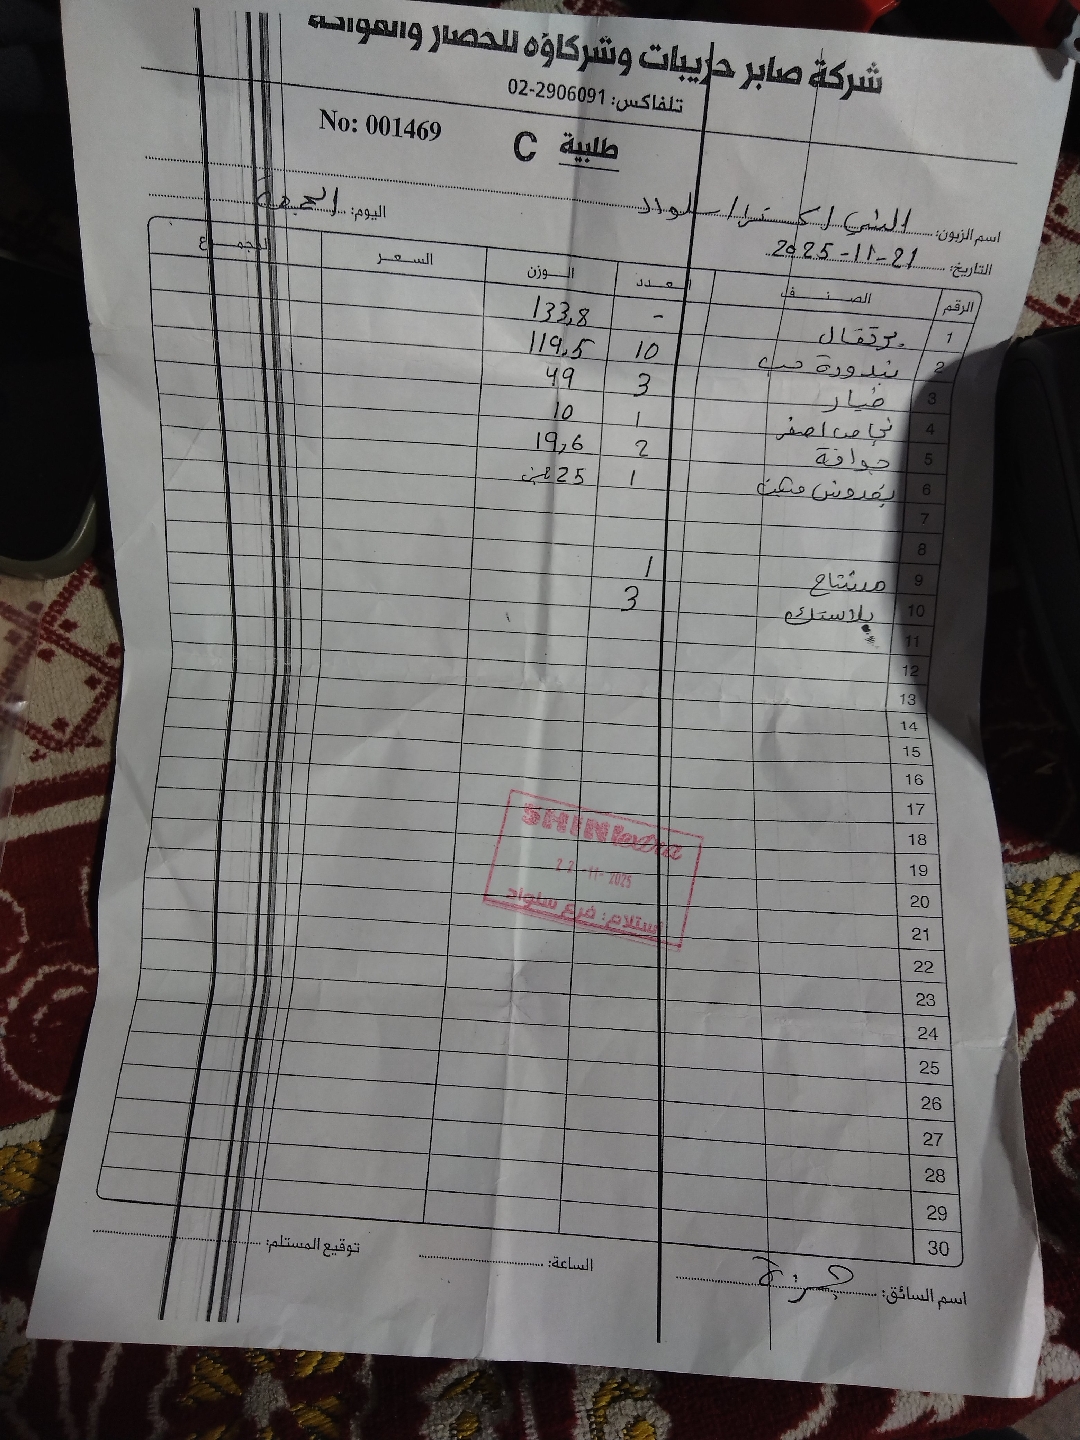 شركة صابر حريبات وشركاؤه للخضار والفواكه
تلفاكس: 02-2906091
طلبية C No: 001469
اسم الزبون: الشني اكسترا سلواد اليوم: الجمعة
التاريخ: 21-11-2025
الرقم الصنف العدد الوزن السعر المجموع
1 برتقال - 133,8
2 بندورة حب 10 119,5
3 خيار 3 49
4 نجاص اصفر 1 10
5 جوافة 2 19,6
6 بقدونس 1 25
7
8
9 مشتاح 1
10 بلاستك 3
11
12
13
14
15
16
17
18
19
20
21
22
23
24
25
26
27
28
29
30
SHINI extra
22-11-2025
استلام: فرع سلواد
اسم السائق: حمزة الساعة: توقيع المستلم: